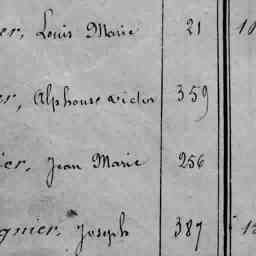 er, Louis Marie 21 1
er, Alphonse victor 359
ier, Jean Marie 256
gnier, Joseph 387 1